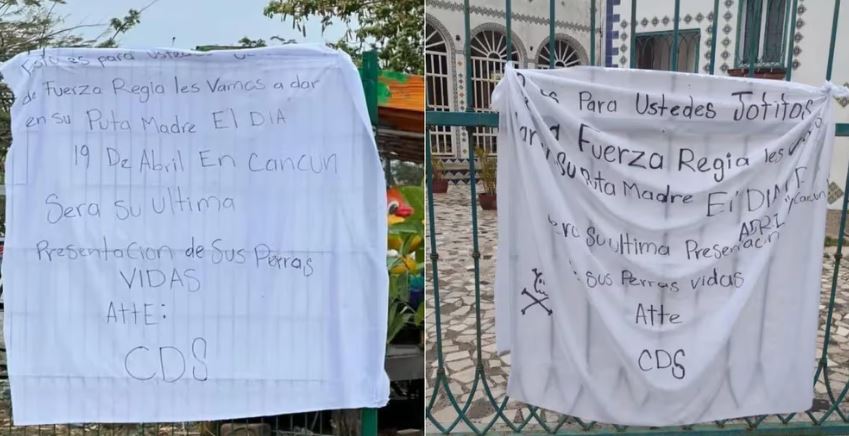 es para
de Fuerza Regia les Vamos a dar
en su Puta Madre El DIA
19 De Abril En Cancun
Sera su ultima
Presentacion de Sus Perras
VIDAS
AttE:
CDS
Para Ustedes Jotitos
Fuerza Regia les
su Puta Madre El DIA
ABRI Cancun
su ultima Presentacin
sus Perras vidas
Atte
CDS